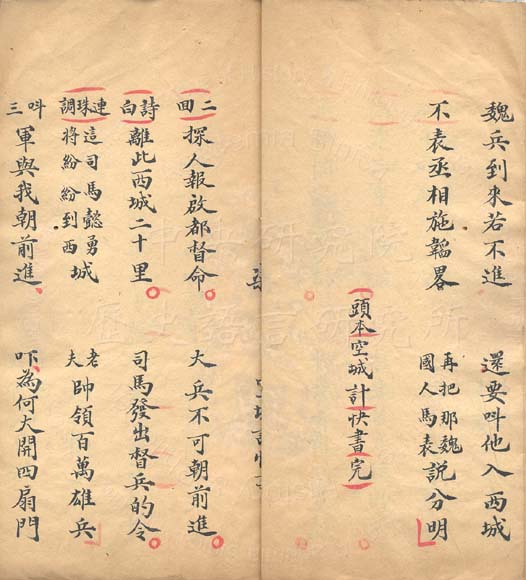 魏兵到來若不進　還要叫他入西城
不表丞相施韜畧　再把那魏國人馬表說分明
頭本空城計快書完
二回　探人報啟都督命　大兵不可朝前進
詩白　離此西城二十里　司馬發出督兵的令
連珠調　這司馬懿勇將紛紛到西城　老夫帥領百萬雄兵
叫三軍與我朝前進　吓為何大開四扇門